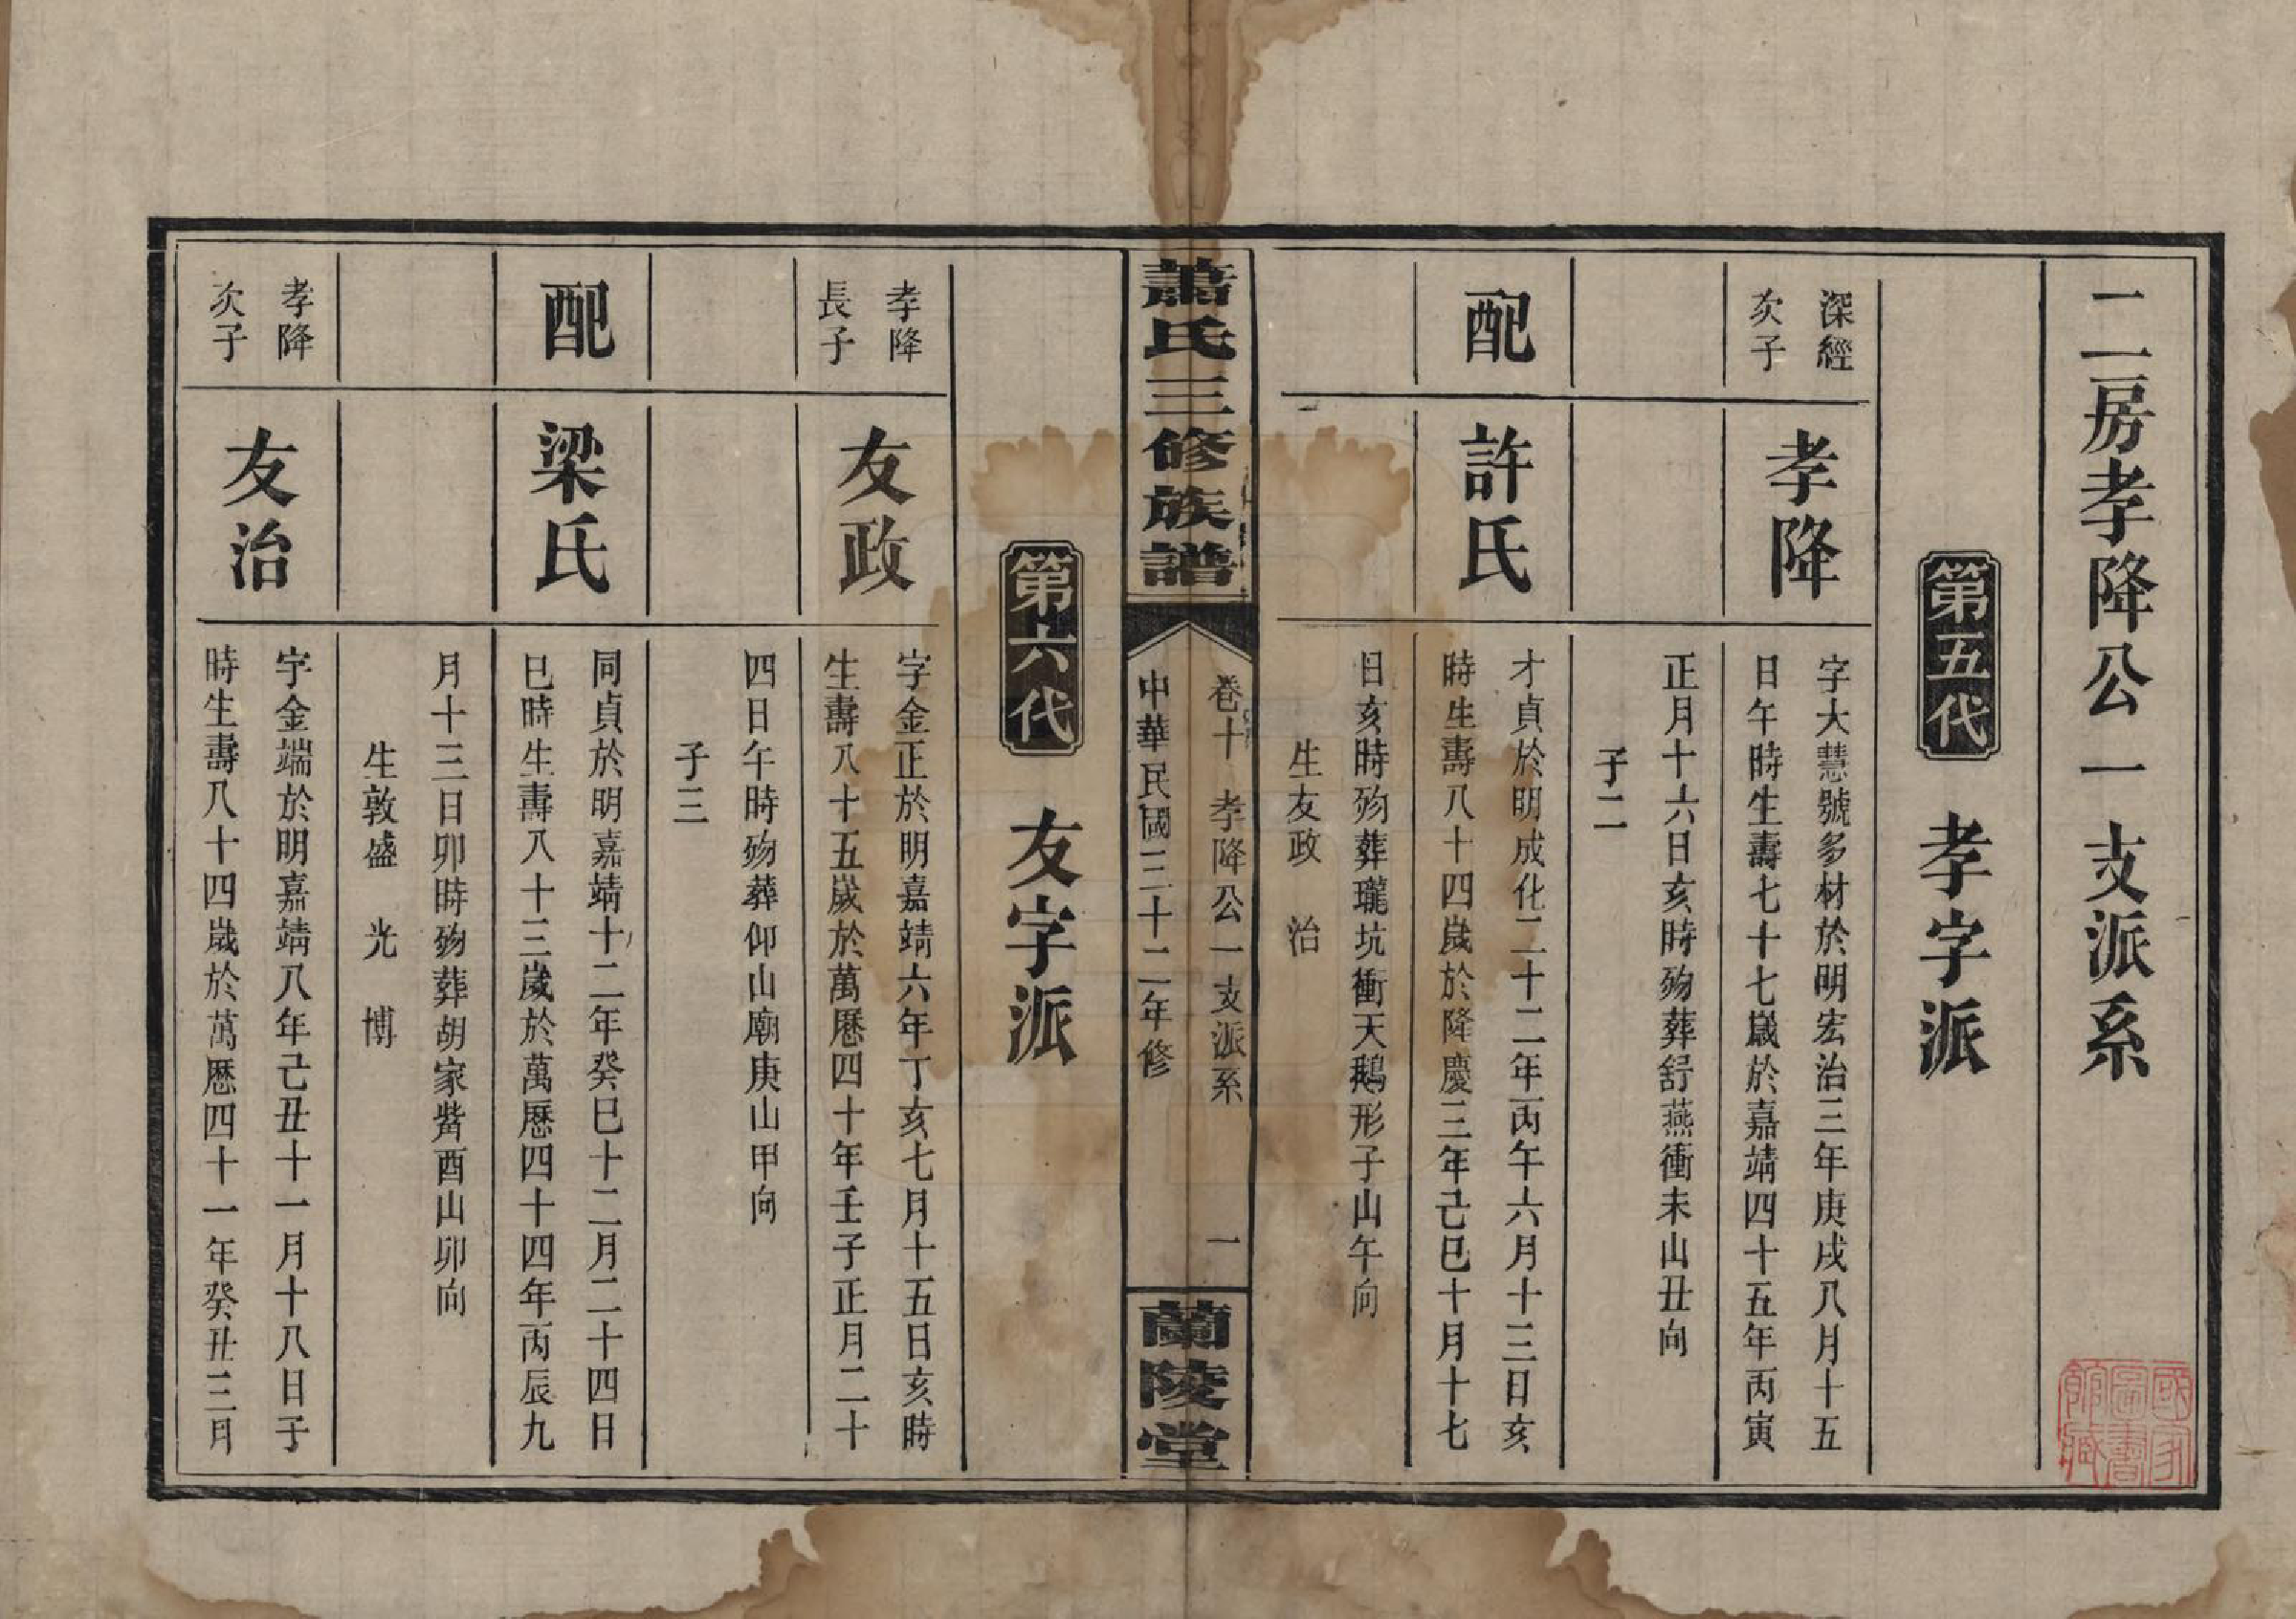 二房孝降公一支派系
第五代　孝字派
深經
次子
孝降
字大慧號多材於明宏治三年庚戌八月十五
日午時生壽七十七歲於嘉靖四十五年丙寅
正月十六日亥時歿葬舒燕衝未山丑向
子二
配
許氏
才貞於明成化二十二年丙午六月十三日亥
時生壽八十四歲於隆慶三年己巳十月十七
日亥時歿葬瓏坑衝天鵝形子山午向
生友政　治
蕭氏三修族譜
卷十　孝降公一支派系　一
中華民國三十二年修
蘭陵堂
第六代　友字派
孝降
長子
友政
字金正於明嘉靖六年丁亥七月十五日亥時
生壽八十五歲於萬曆四十年壬子正月二十
四日午時歿葬仰山廟庚山甲向
子三
配
梁氏
同貞於明嘉靖十二年癸巳十二月二十四日
巳時生壽八十三歲於萬曆四十四年丙辰九
月十三日卯時歿葬胡家觜酉山卯向
生敦盛　光　博
孝降
次子
友治
字金端於明嘉靖八年己丑十一月十八日子
時生壽八十四歲於萬曆四十一年癸丑三月
國家圖書館藏